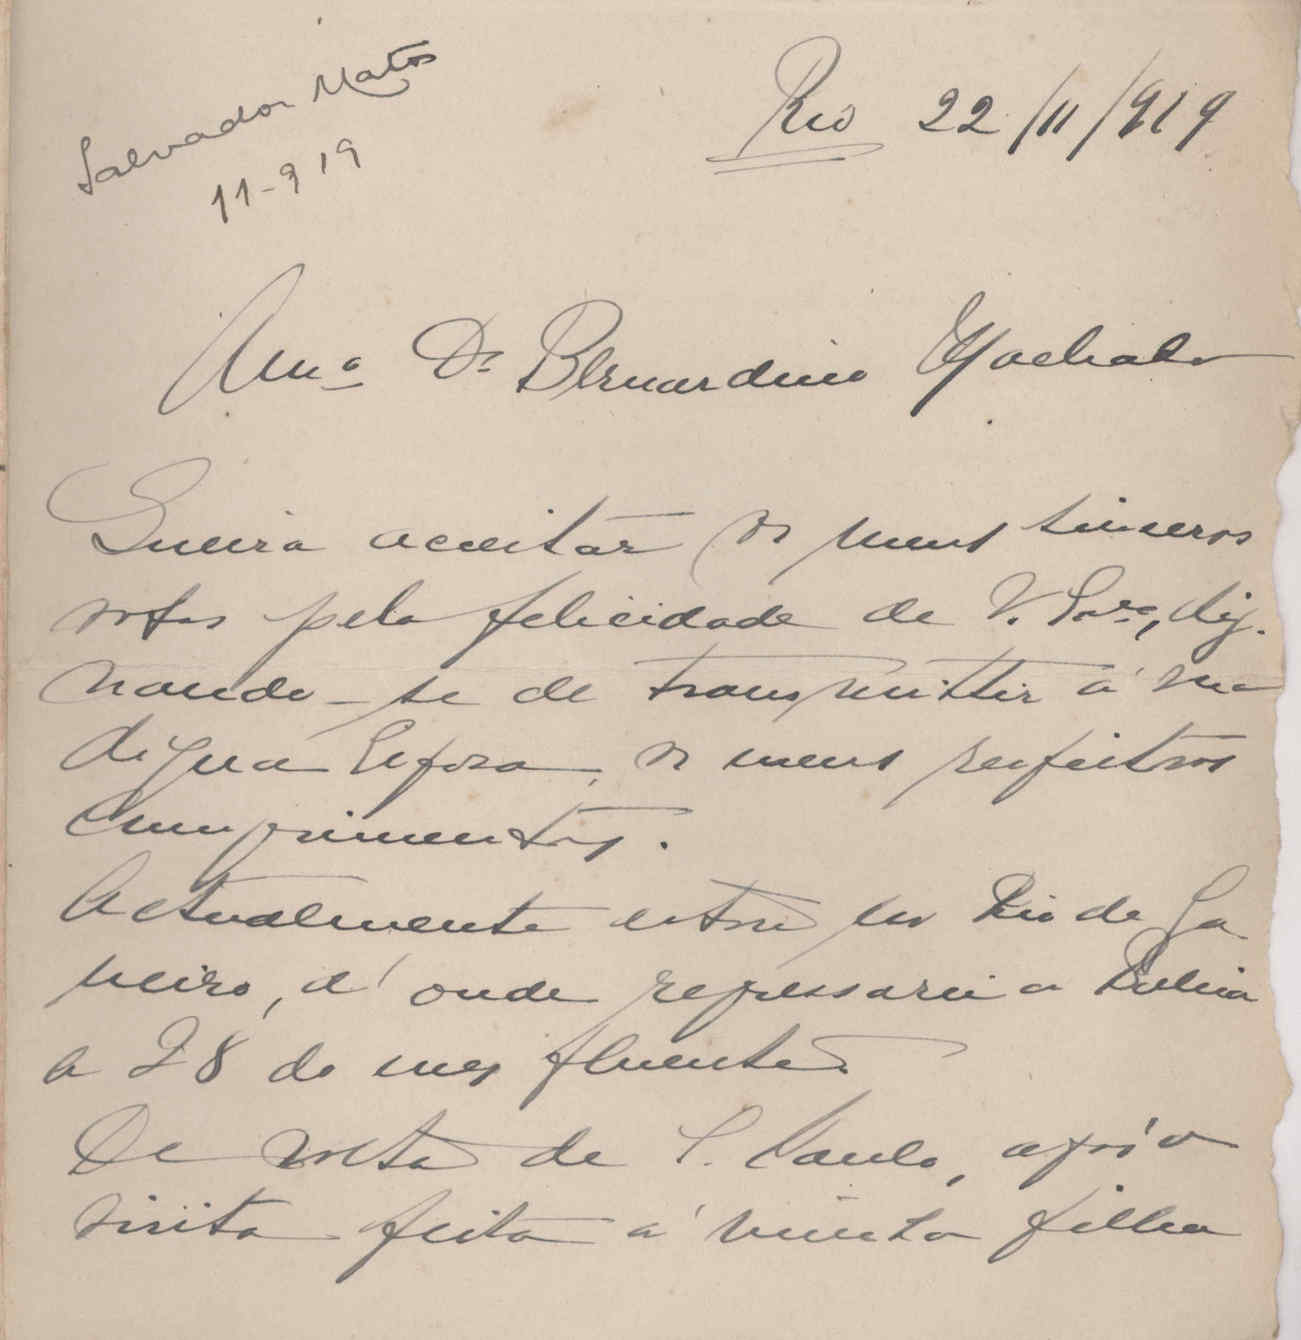 Salvador Matos
11-919
Rio 22/11/919
Amº Dr Bernardino Machado
Queira acceitar os meus sinceros
votos pela felicidade de V. Exª, dig-
nando-se de transmittir á sua
digna Esposa, os meus respeitosos
cumprimentos.
Actualmente estou no Rio de Ja-
neiro, d'onde regressarei a Bahia
a 28 do mez fluente.
De volta de S. Paulo, após a
visita feita á minha filha